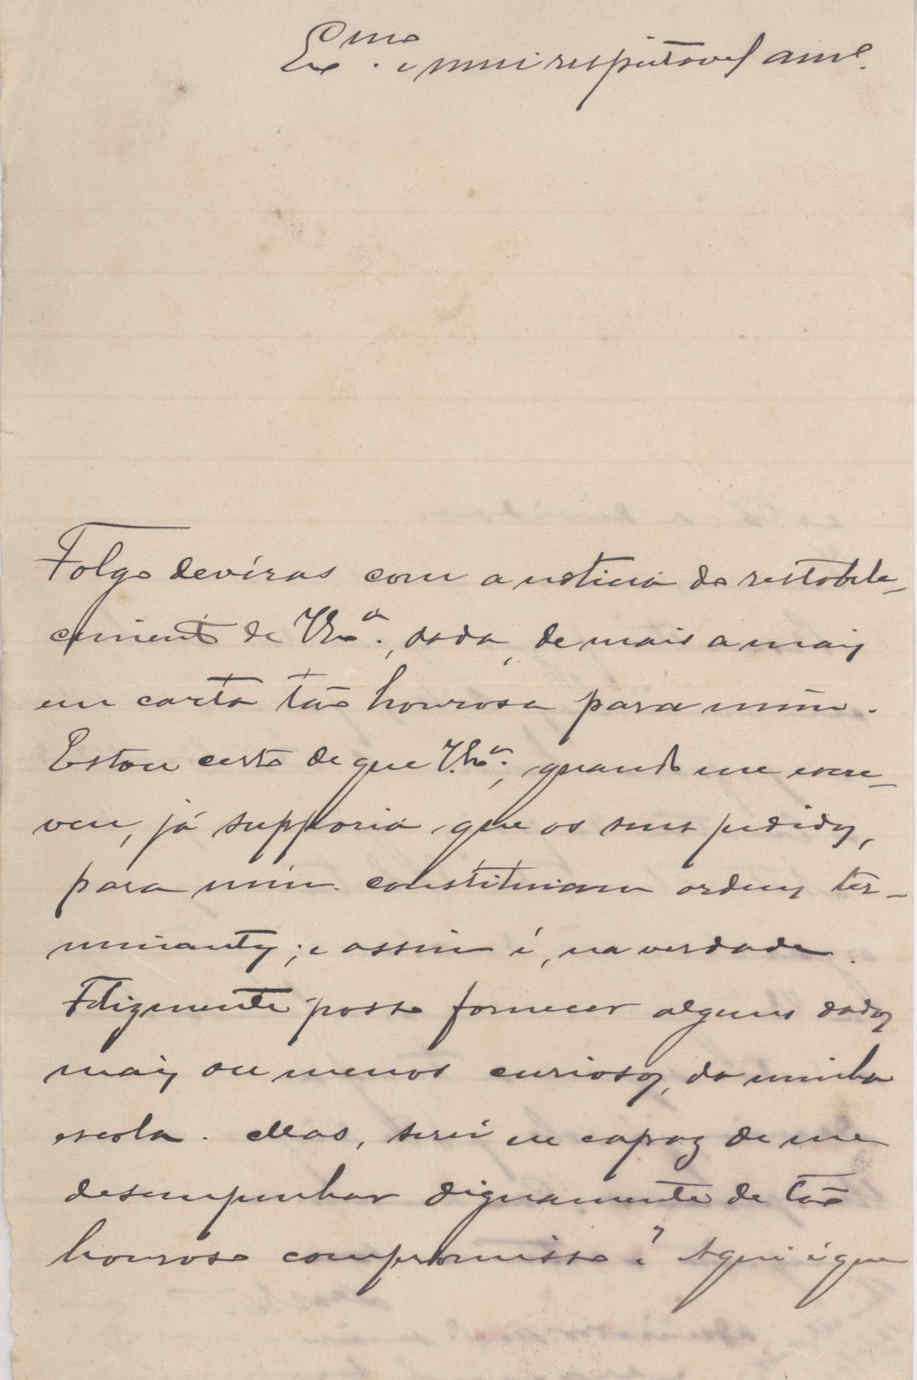 Ex.mo e mui respeitavel am.o
Folgo devéras com a noticia do restabele-
cimento de V. Ex.a, dada, de mais a mais
em carta tão honrosa para mim.
Estou certo de que V. Ex.a, quando me escre-
veu, já supporia que os seus pedidos,
para mim constituiam ordens ter-
minantes; e assim é, na verdade.
Felizmente posso fornecer alguns dados
mais ou menos curiosos, da minha
escola. Mas, serei eu capaz de me
desempenhar dignamente de tão
honroso compromisso? Aqui é que